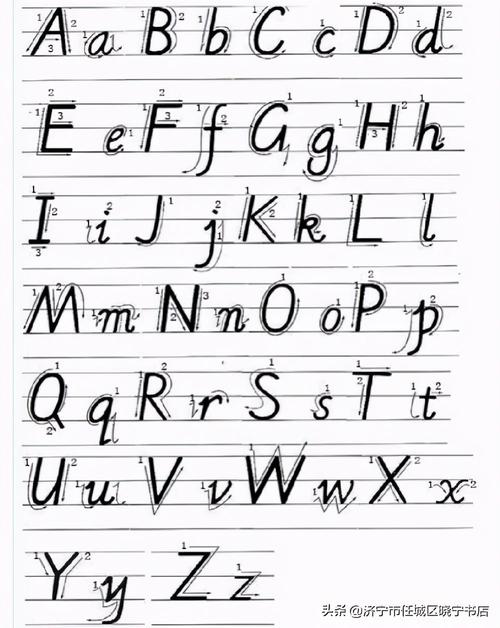 A a B b C c D d
E e F f G g H h
I i J j K k L l
M m N n O o P p
Q q R r S s T t
U u V v W w X x
Y y Z z
头条 @济宁市任城区晓宁书店